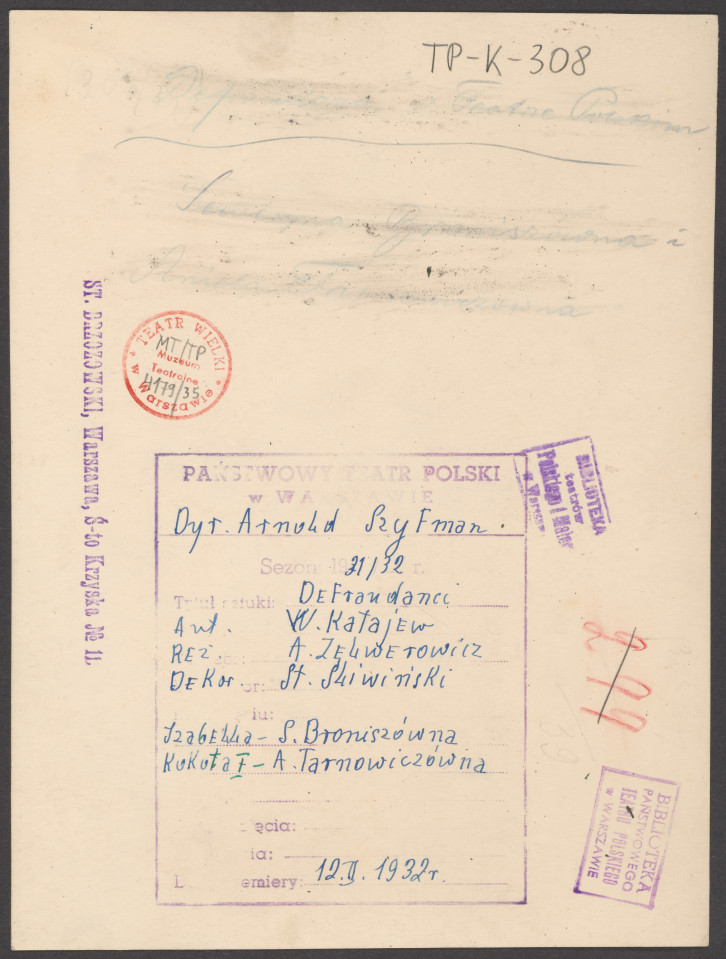 TP-K-308
Teatrze Polskim
i
ST. BRZOZOWSKI, Warszawa, Ś-to Krzyska № 11.
* TEATR WIELKI *
w Warszawie
MT/TP
Muzeum
Teatralne
4179/35
PAŃSTWOWY TEATR POLSKI
w WARSZAWIE
Dyr. Arnold Szyfman.
Sezon 1931/32 r.
Tytuł sztuki: Defraudanci
Aut. W. Katajew
Reż. A. Zelwerowicz
Dekor. St. Śliwiński
iu:
Izabella - S. Broniszówna
Kokota I - A. Tarnowiczówna
ęcia:
ia:
emiery: 12.II.1932 r.
BIBLIOTEKA
teatrów
Polskiego i Małego
w Warszawie
209
BIBLIOTEKA
PAŃSTWOWEGO
TEATRU POLSKIEGO
w WARSZAWIE